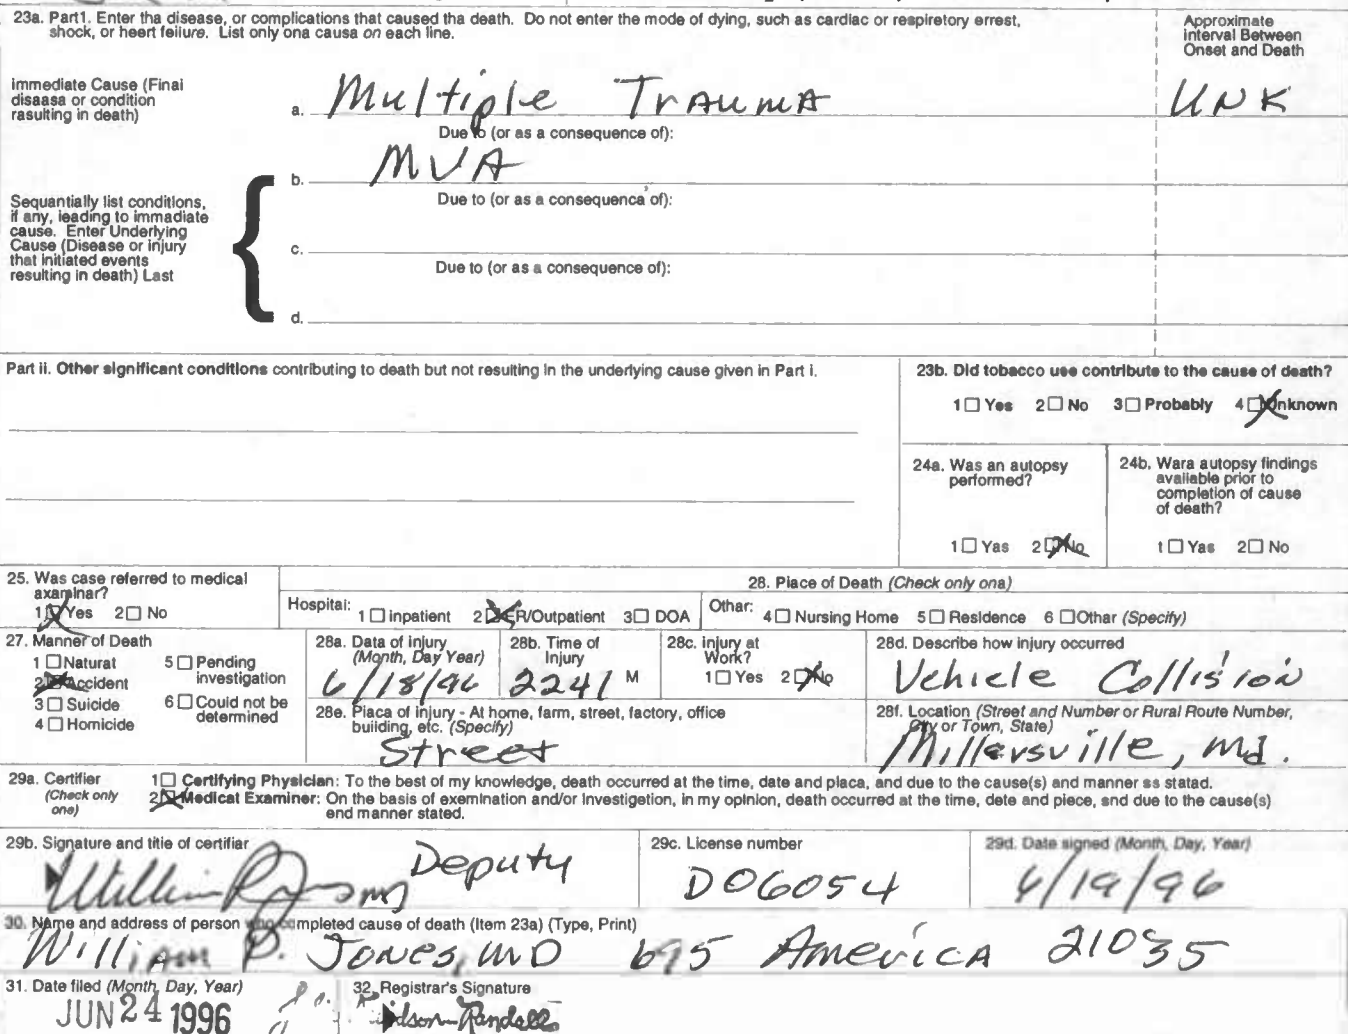 23a. Part1. Enter tha disease, or complications that caused tha death. Do not enter the mode of dying, such as cardiac or respiretory errest,
shock, or heert feilure. List only ona causa on each line.
Approximate
interval Between
Onset and Death
immediate Cause (Final
disaasa or condition
rasulting in death)
a. Multiple Trauma UNK
Due to (or as a consequence of):
b. MVA
Sequantially list conditions,
if any, leading to immadiate
cause. Enter Underlying
Cause (Disease or injury
that initiated events
resulting in death) Last
Due to (or as a consequenca of):
c.
Due to (or as a consequence of):
d.
Part ii. Other significant conditions contributing to death but not resulting in the underlying cause given in Part i.
23b. Did tobacco use contribute to the cause of death?
1 Yes 2 No 3 Probably 4 Unknown
24a. Was an autopsy
performed?
1 Yas 2 No
24b. Wara autopsy findings
available prior to
completion of cause
of death?
1 Yas 2 No
25. Was case referred to medical
axaminar?
1 Yes 2 No
28. Place of Death (Check only ona)
Hospital: 1 inpatient 2 ER/Outpatient 3 DOA Othar: 4 Nursing Home 5 Residence 6 Other (Specify)
27. Manner of Death
1 Natural 5 Pending
investigation
2 Accident
3 Suicide 6 Could not be
determined
4 Homicide
28a. Data of injury
(Month, Day Year)
6/18/96
28b. Time of
Injury
2241 M
28c. injury at
Work?
1 Yes 2 No
28d. Describe how injury occurred
Vehicle Collision
28e. Placa of injury - At home, farm, street, factory, office
building, etc. (Specify)
Street
28f. Location (Street and Number or Rural Route Number,
City or Town, State)
Millersville, Md.
29a. Certifier
(Check only
one)
1 Certifying Physician: To the best of my knowledge, death occurred at the time, date and placa, and due to the cause(s) and manner ss statad.
2 Medical Examiner: On the basis of exemination and/or Investigetion, in my opinion, death occurred at the time, dete and piece, snd due to the cause(s)
end manner stated.
29b. Signature and title of certifiar
Deputy
29c. License number
D06054
29d. Date signed (Month, Day, Year)
6/19/96
30. Name and address of person who completed cause of death (Item 23a) (Type, Print)
William P. Jones, MD 695 America 21035
31. Date filed (Month, Day, Year)
JUN 24 1996
32. Registrar's Signature